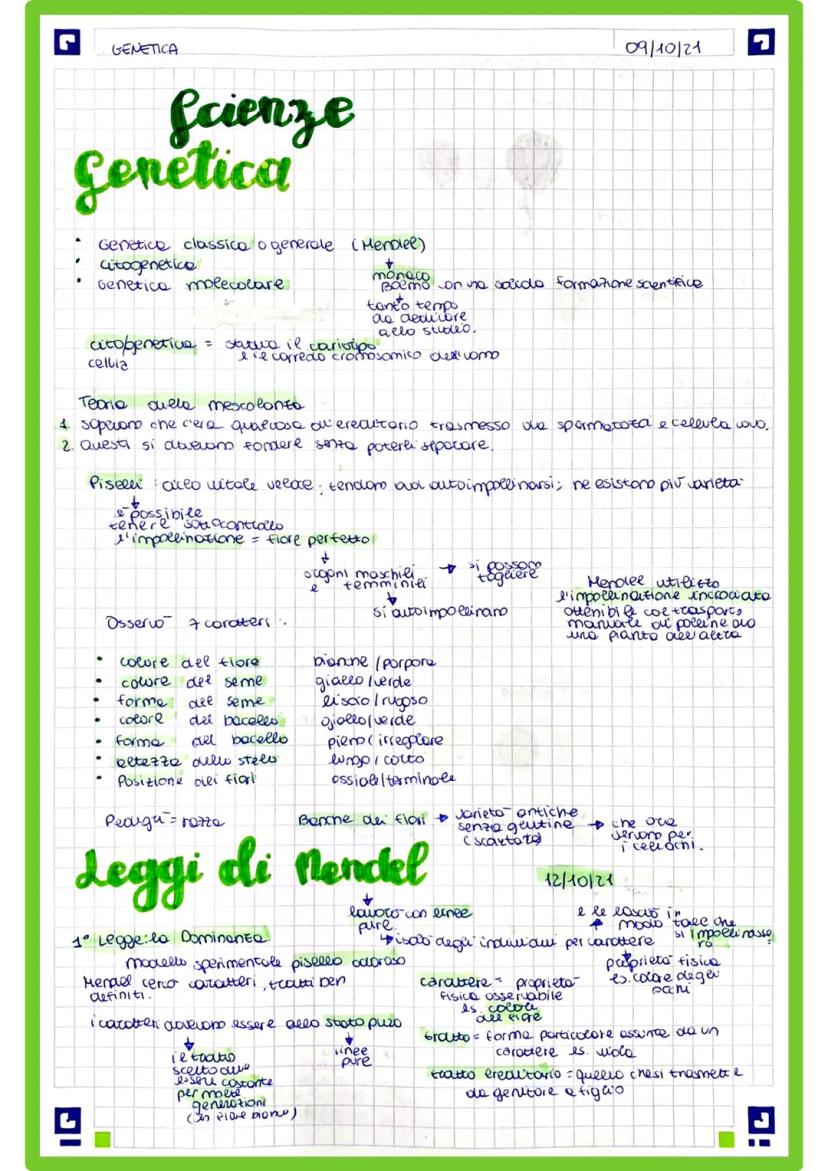 GENETICA
09/10/21
Scienze
Genetica
• Genetica classica o generale (Mendel)
• citogenetica
• Genetica molecolare
monaco
Boemo con una solida formazione scientifica
tanto tempo
da dedicare
allo studio.
citogenetica = studia il cariotipo
cellula
è il corredo cromosomico dell'uomo
Teoria della mescolanza
1. sapevano che c'era qualcosa di ereditario trasmesso da spermatozoi e cellula uovo.
2. Questi si dovevano fondere senza poterli separare.
Piselli: ciclo vitale veloce; tendono ad autoimpollinarsi; ne esistono più varietà
è possibile
tenere sotto controllo
l'impollinazione = fiore perfetto
organi maschili → si possono
e femminili togliere
si autoimpollinano
Mendel utilizzò
l'impollinazione incrociata
ottenibile col trasporto
manuale di polline da
una pianta all'altra
Osservò 7 caratteri:
• colore del fiore bianche/porpora
• colore del seme giallo/verde
• forma del seme liscio/rugoso
• colore del bacello giallo/verde
• forma del bacello pieno/irregolare
• altezza dello stelo lungo/corto
• Posizione dei fiori assiale/terminale
Pedigù = razza
Banche dei fiori → varietà antiche
senza glutine → che ora
(scartate) servono per
i celiachi.
Leggi di Mendel
12/10/21
lavorò con linee
pure
e le lasciò in
modo tale che
si impollinasse
ro
↳ isolò degli individui per carattere
1° Legge: la Dominanza
proprietà fisica
es. colore degli
occhi
modello sperimentale pisello odoroso
Mendel cercò caratteri, tratti ben
definiti.
carattere = proprietà
fisica osservabile
es. colore
del fiore
i caratteri dovevano essere allo stato puro
il tratto
scelto deve
essere costante
per molte
generazioni
(es fiore bianco)
linee
pure
tratto = forma particolare assunta da un
carattere es. viola
tratto ereditario = quello che si trasmette
da genitore a figlio